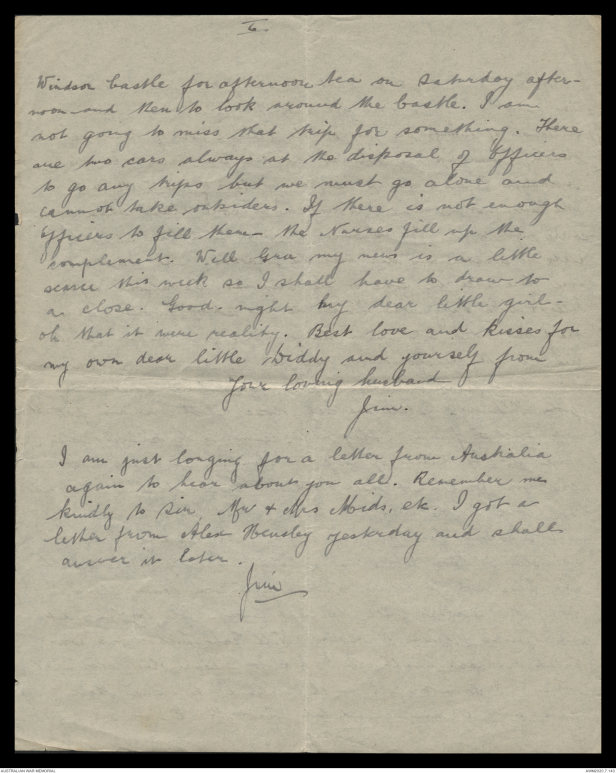 6.
Windsor Castle for afternoon tea on Saturday after-
noon and then to look around the Castle. I am
not going to miss that trip for something. There
are two cars always at the disposal of Officers
to go any trips but we must go alone and
cannot take outsiders. If there is not enough
Officers to fill them the Nurses fill up the
complement. Well Gra my news is a little
scarce this week so I shall have to draw to
a close. Good-night my dear little girl-
oh that it were reality. Best love and kisses for
my own dear little Diddy and yourself from
Your loving husband
Jim.
I am just longing for a letter from Australia
again to hear about you all. Remember me
kindly to Sir, Mr & Mrs etc. I got a
letter from Alex Hensley yesterday and shall
answer it later.
Jim
AUSTRALIAN WAR MEMORIAL